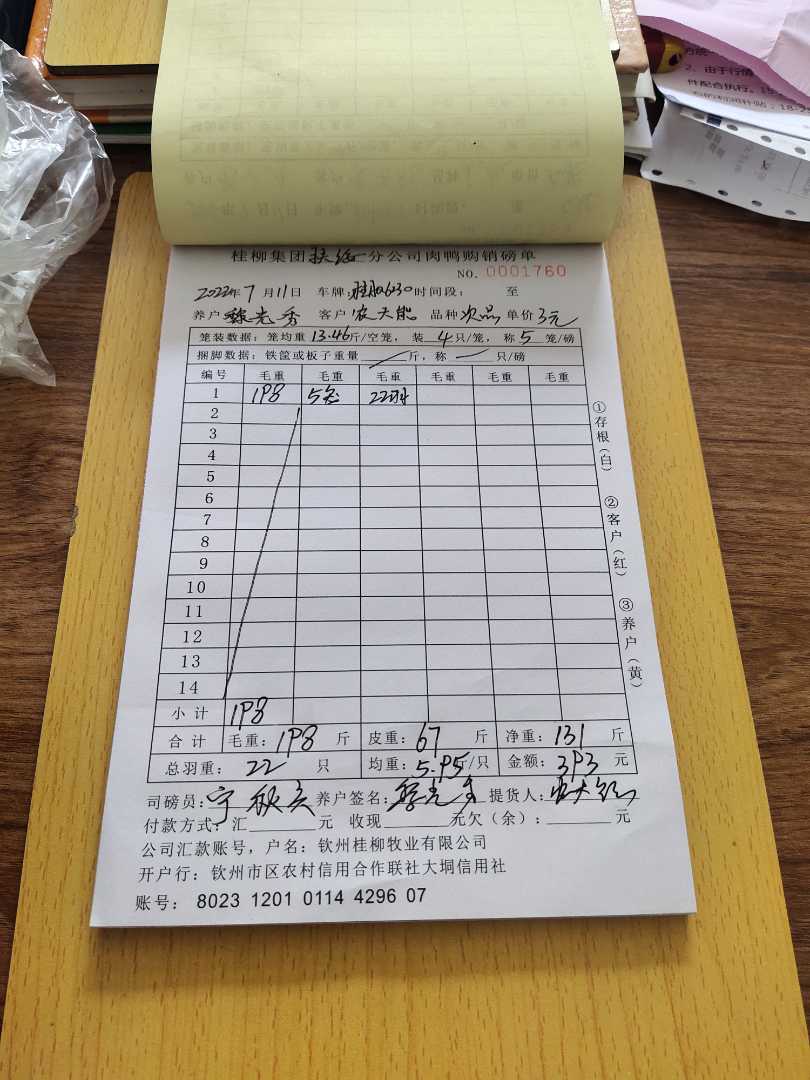 方统一
2、由于行情
件配合执行。
桂柳集团扶绥一分公司肉鸭购销磅单
NO. 0001760
2022年7月11日 车牌:桂 6230时间段: 至
养户 光秀 客户 农大能 品种 次品 单价3元
笼装数据: 笼均重13.46斤/空笼, 装4只/笼, 称5笼/磅
捆脚数据: 铁筐或板子重量 斤, 称 只/磅
编号 毛重 毛重 毛重 毛重 毛重 毛重
1 198 5笼 22羽
2
3
4
5
6
7
8
9
10
11
12
13
14
小计 198
合计 毛重: 198 斤 皮重: 67 斤 净重: 131 斤
总羽重: 22 只 均重: 5.95斤/只 金额: 393 元
司磅员: 宁 养户签名: 光秀 提货人: 农大能
付款方式: 汇 元 收现 元欠(余): 元
公司汇款账号, 户名: 钦州桂柳牧业有限公司
开户行: 钦州市区农村信用合作联社大垌信用社
账号: 8023 1201 0114 4296 07
①存根(白)
②客户(红)
③养户(黄)